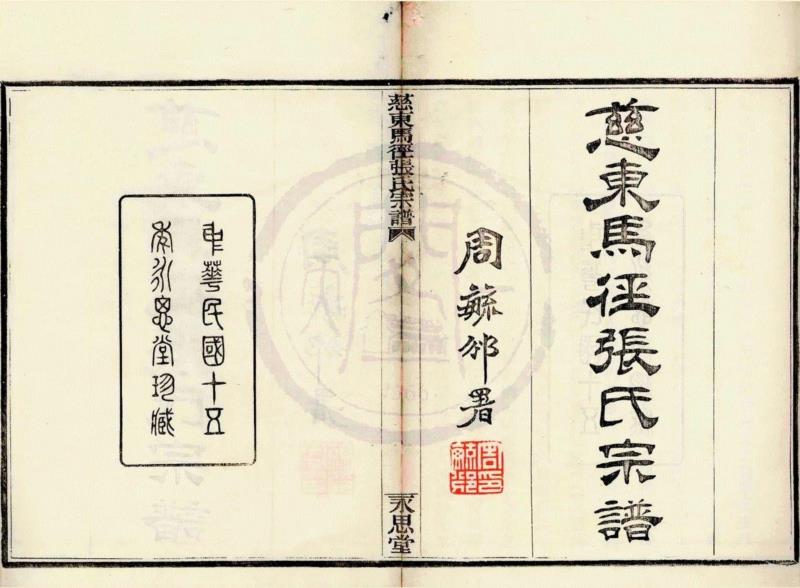 慈東馬徑張氏宗譜
周毓邠署
周毓邠印
慈東馬徑張氏宗譜
永思堂
中華民國十五
年永思堂珍臧
1966